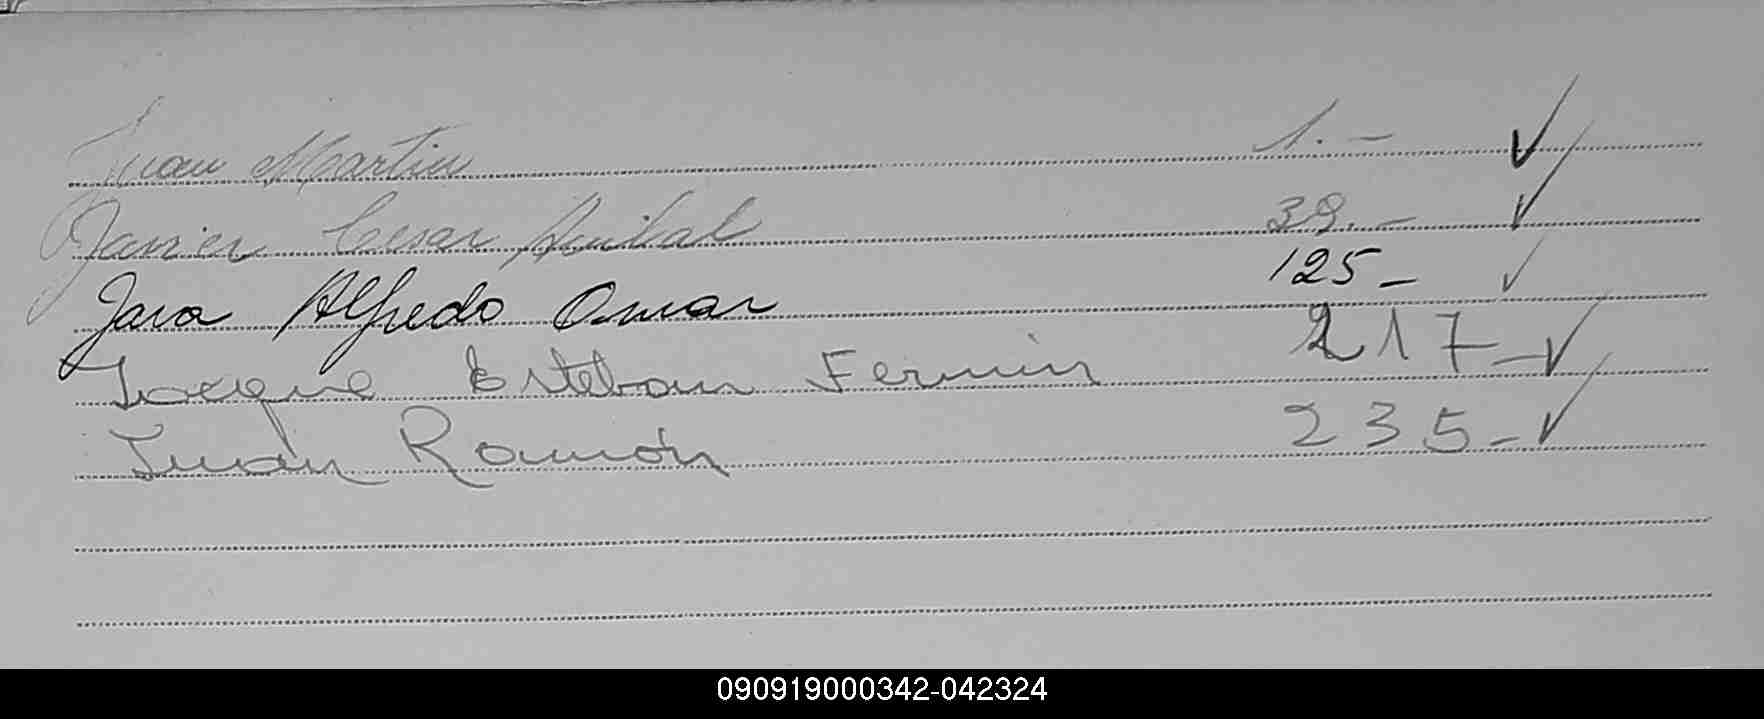 Juan Martin 1.- ✓
Javier Cesar Anibal 39.- ✓
Jara Alfredo Omar 125- ✓
Jacque Esteban Fermín 217- ✓
Juan Ramón 235- ✓
090919000342-042324